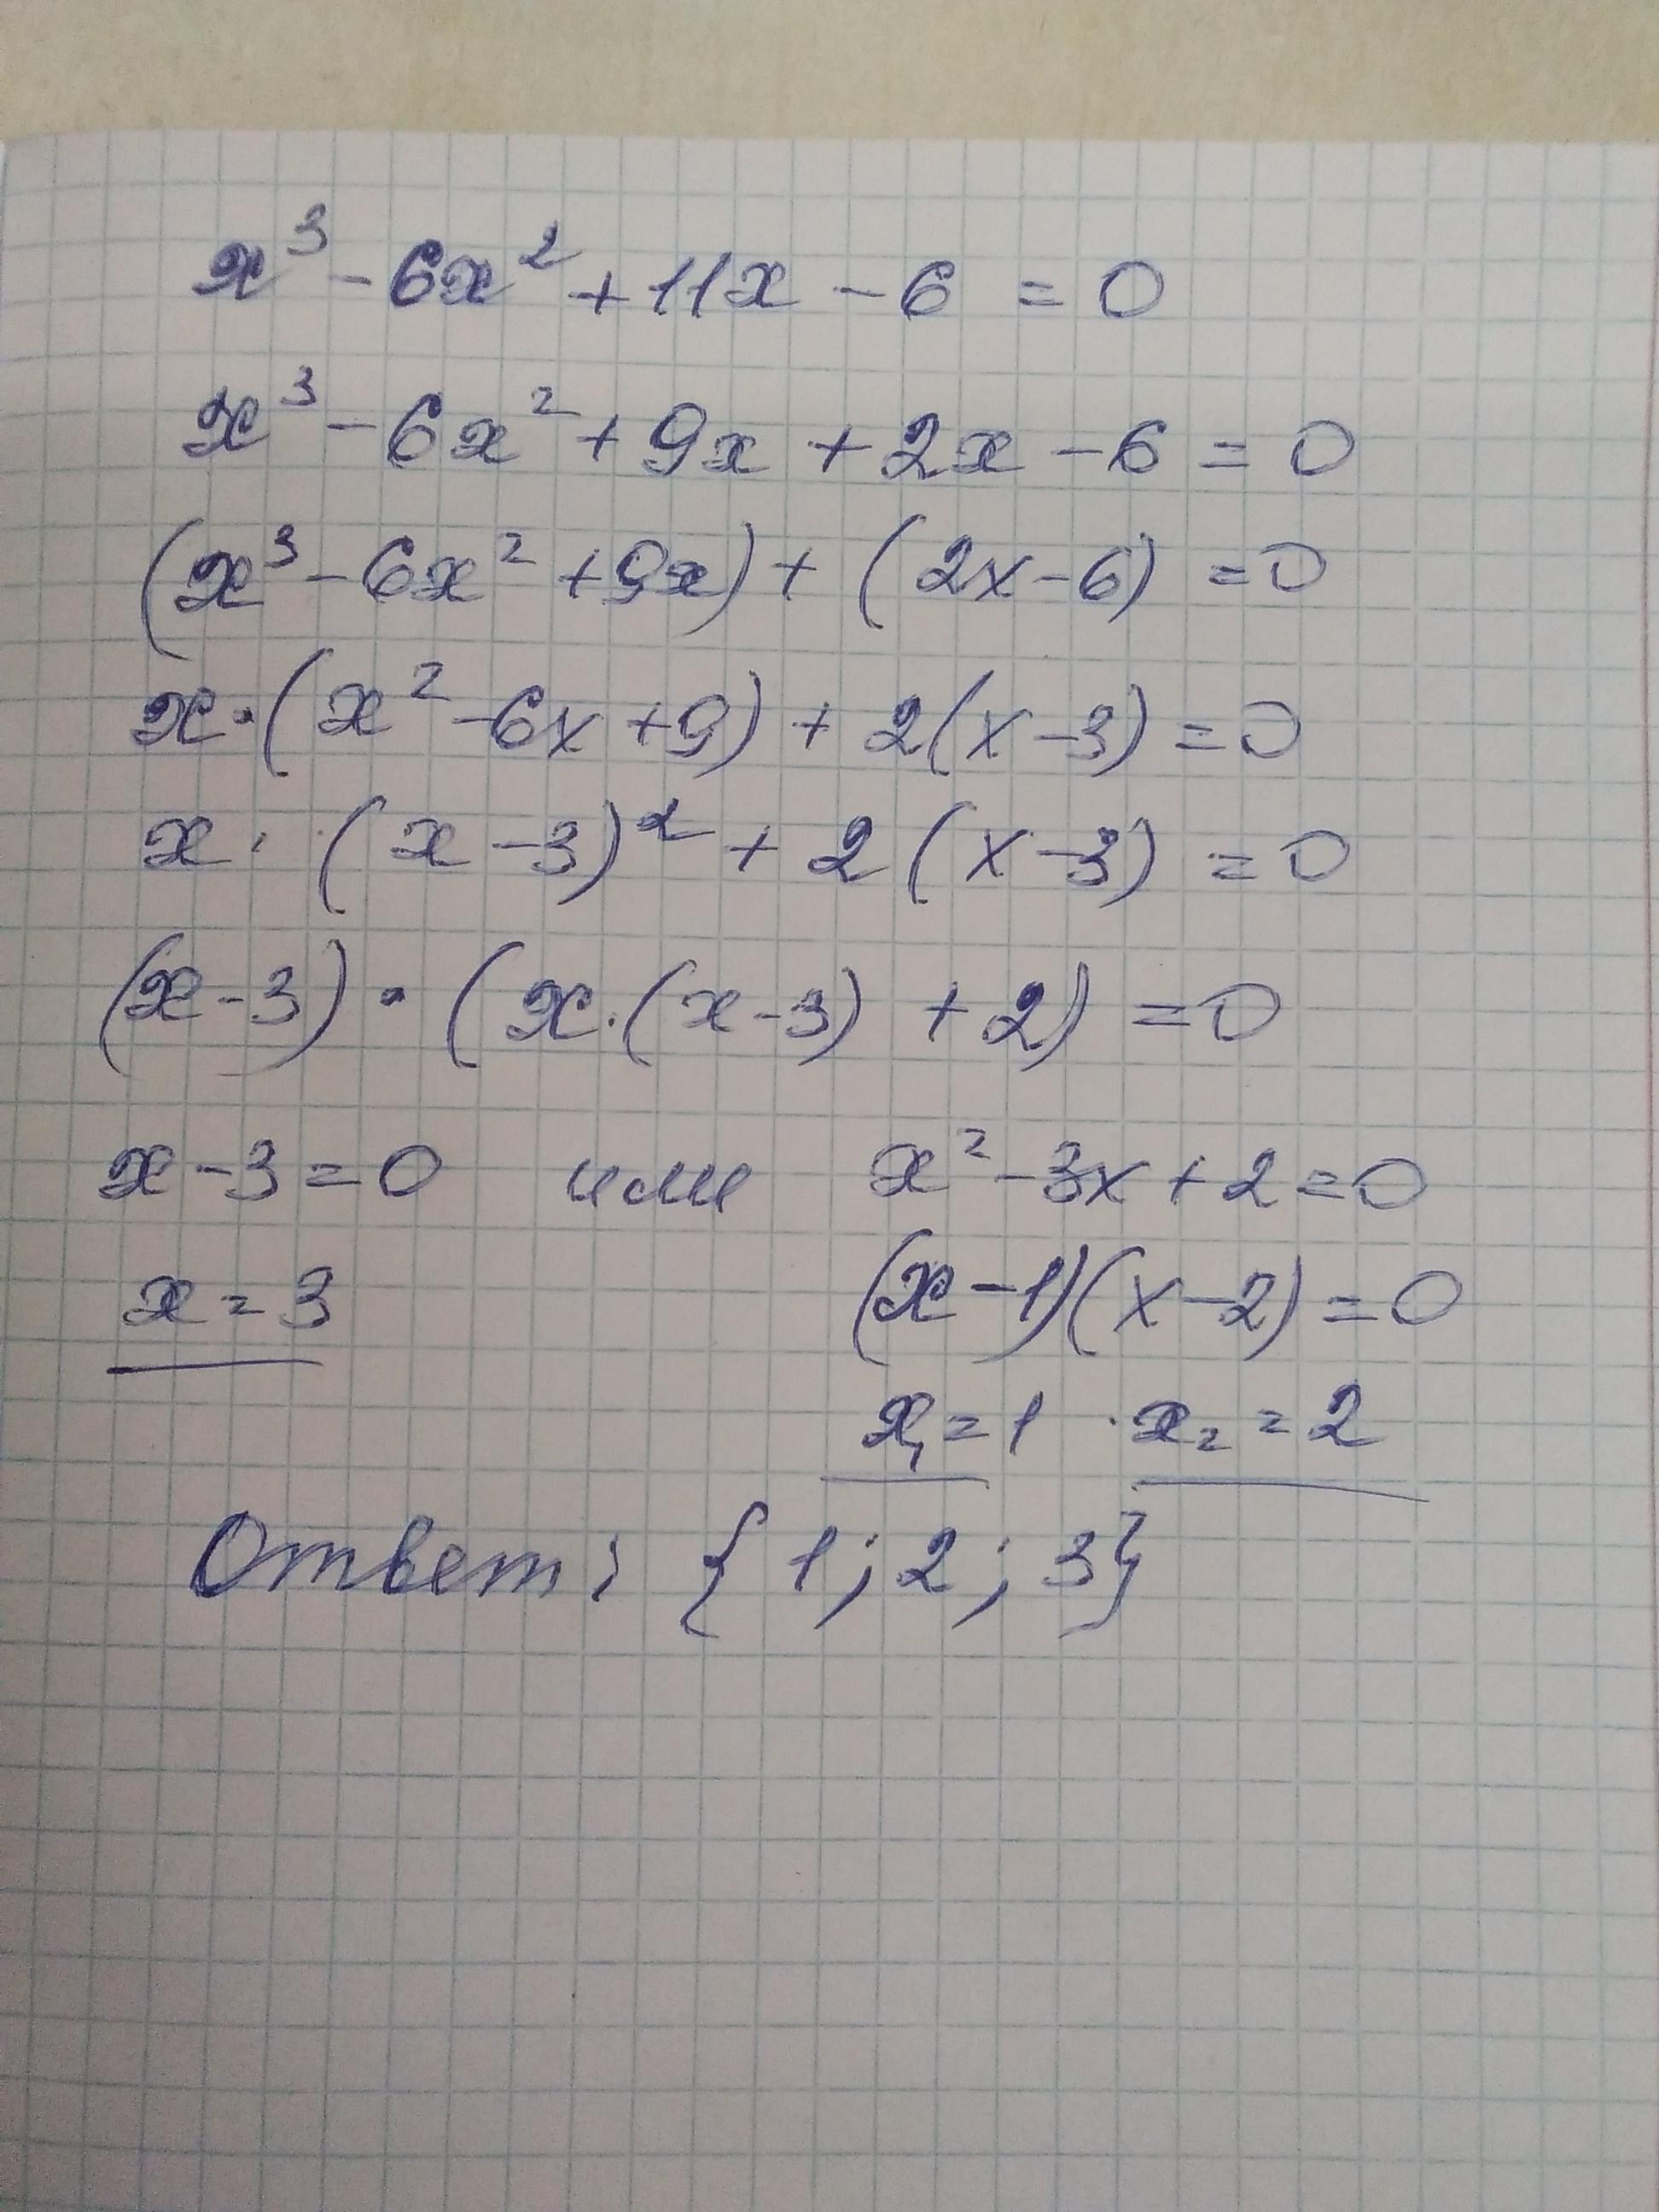 x³ - 6x² + 11x - 6 = 0
x³ - 6x² + 9x + 2x - 6 = 0
(x³ - 6x² + 9x) + (2x - 6) = 0
x · (x² - 6x + 9) + 2(x - 3) = 0
x · (x - 3)² + 2(x - 3) = 0
(x - 3) · (x · (x - 3) + 2) = 0
x - 3 = 0 или x² - 3x + 2 = 0
x = 3 (x - 1)(x - 2) = 0
x₁ = 1 x₂ = 2
Ответ: {1; 2; 3}